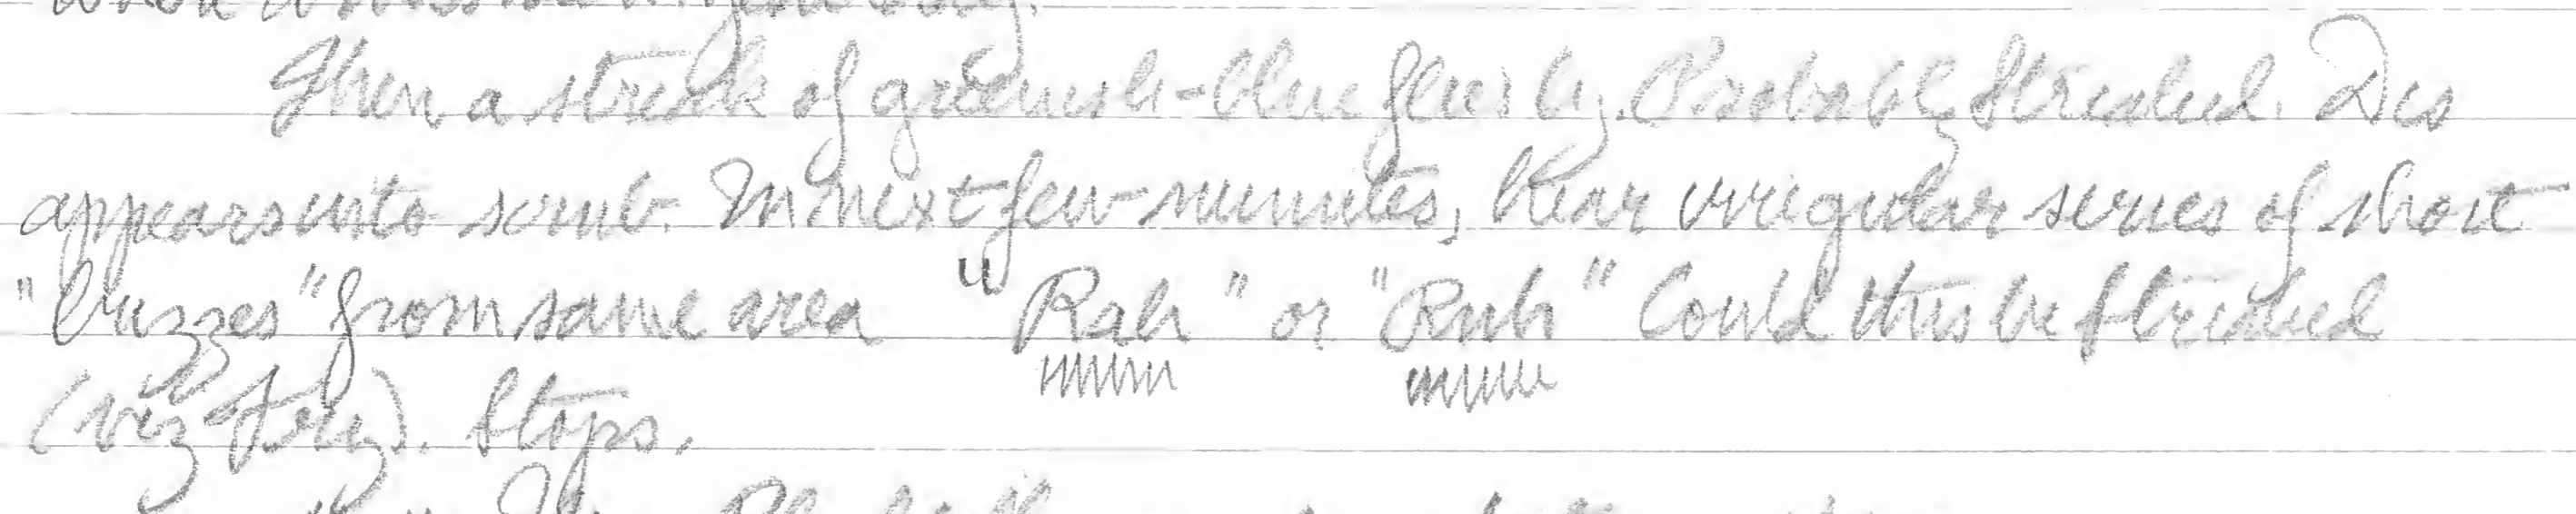 Then a streak of greenish-blue flies by. Probably Streaked. Dis
appears into scrub. In next few minutes, hear irregular series of short
"buzzes" from same area "Rah" or "Ruh" Could this be Streaked
Stops.